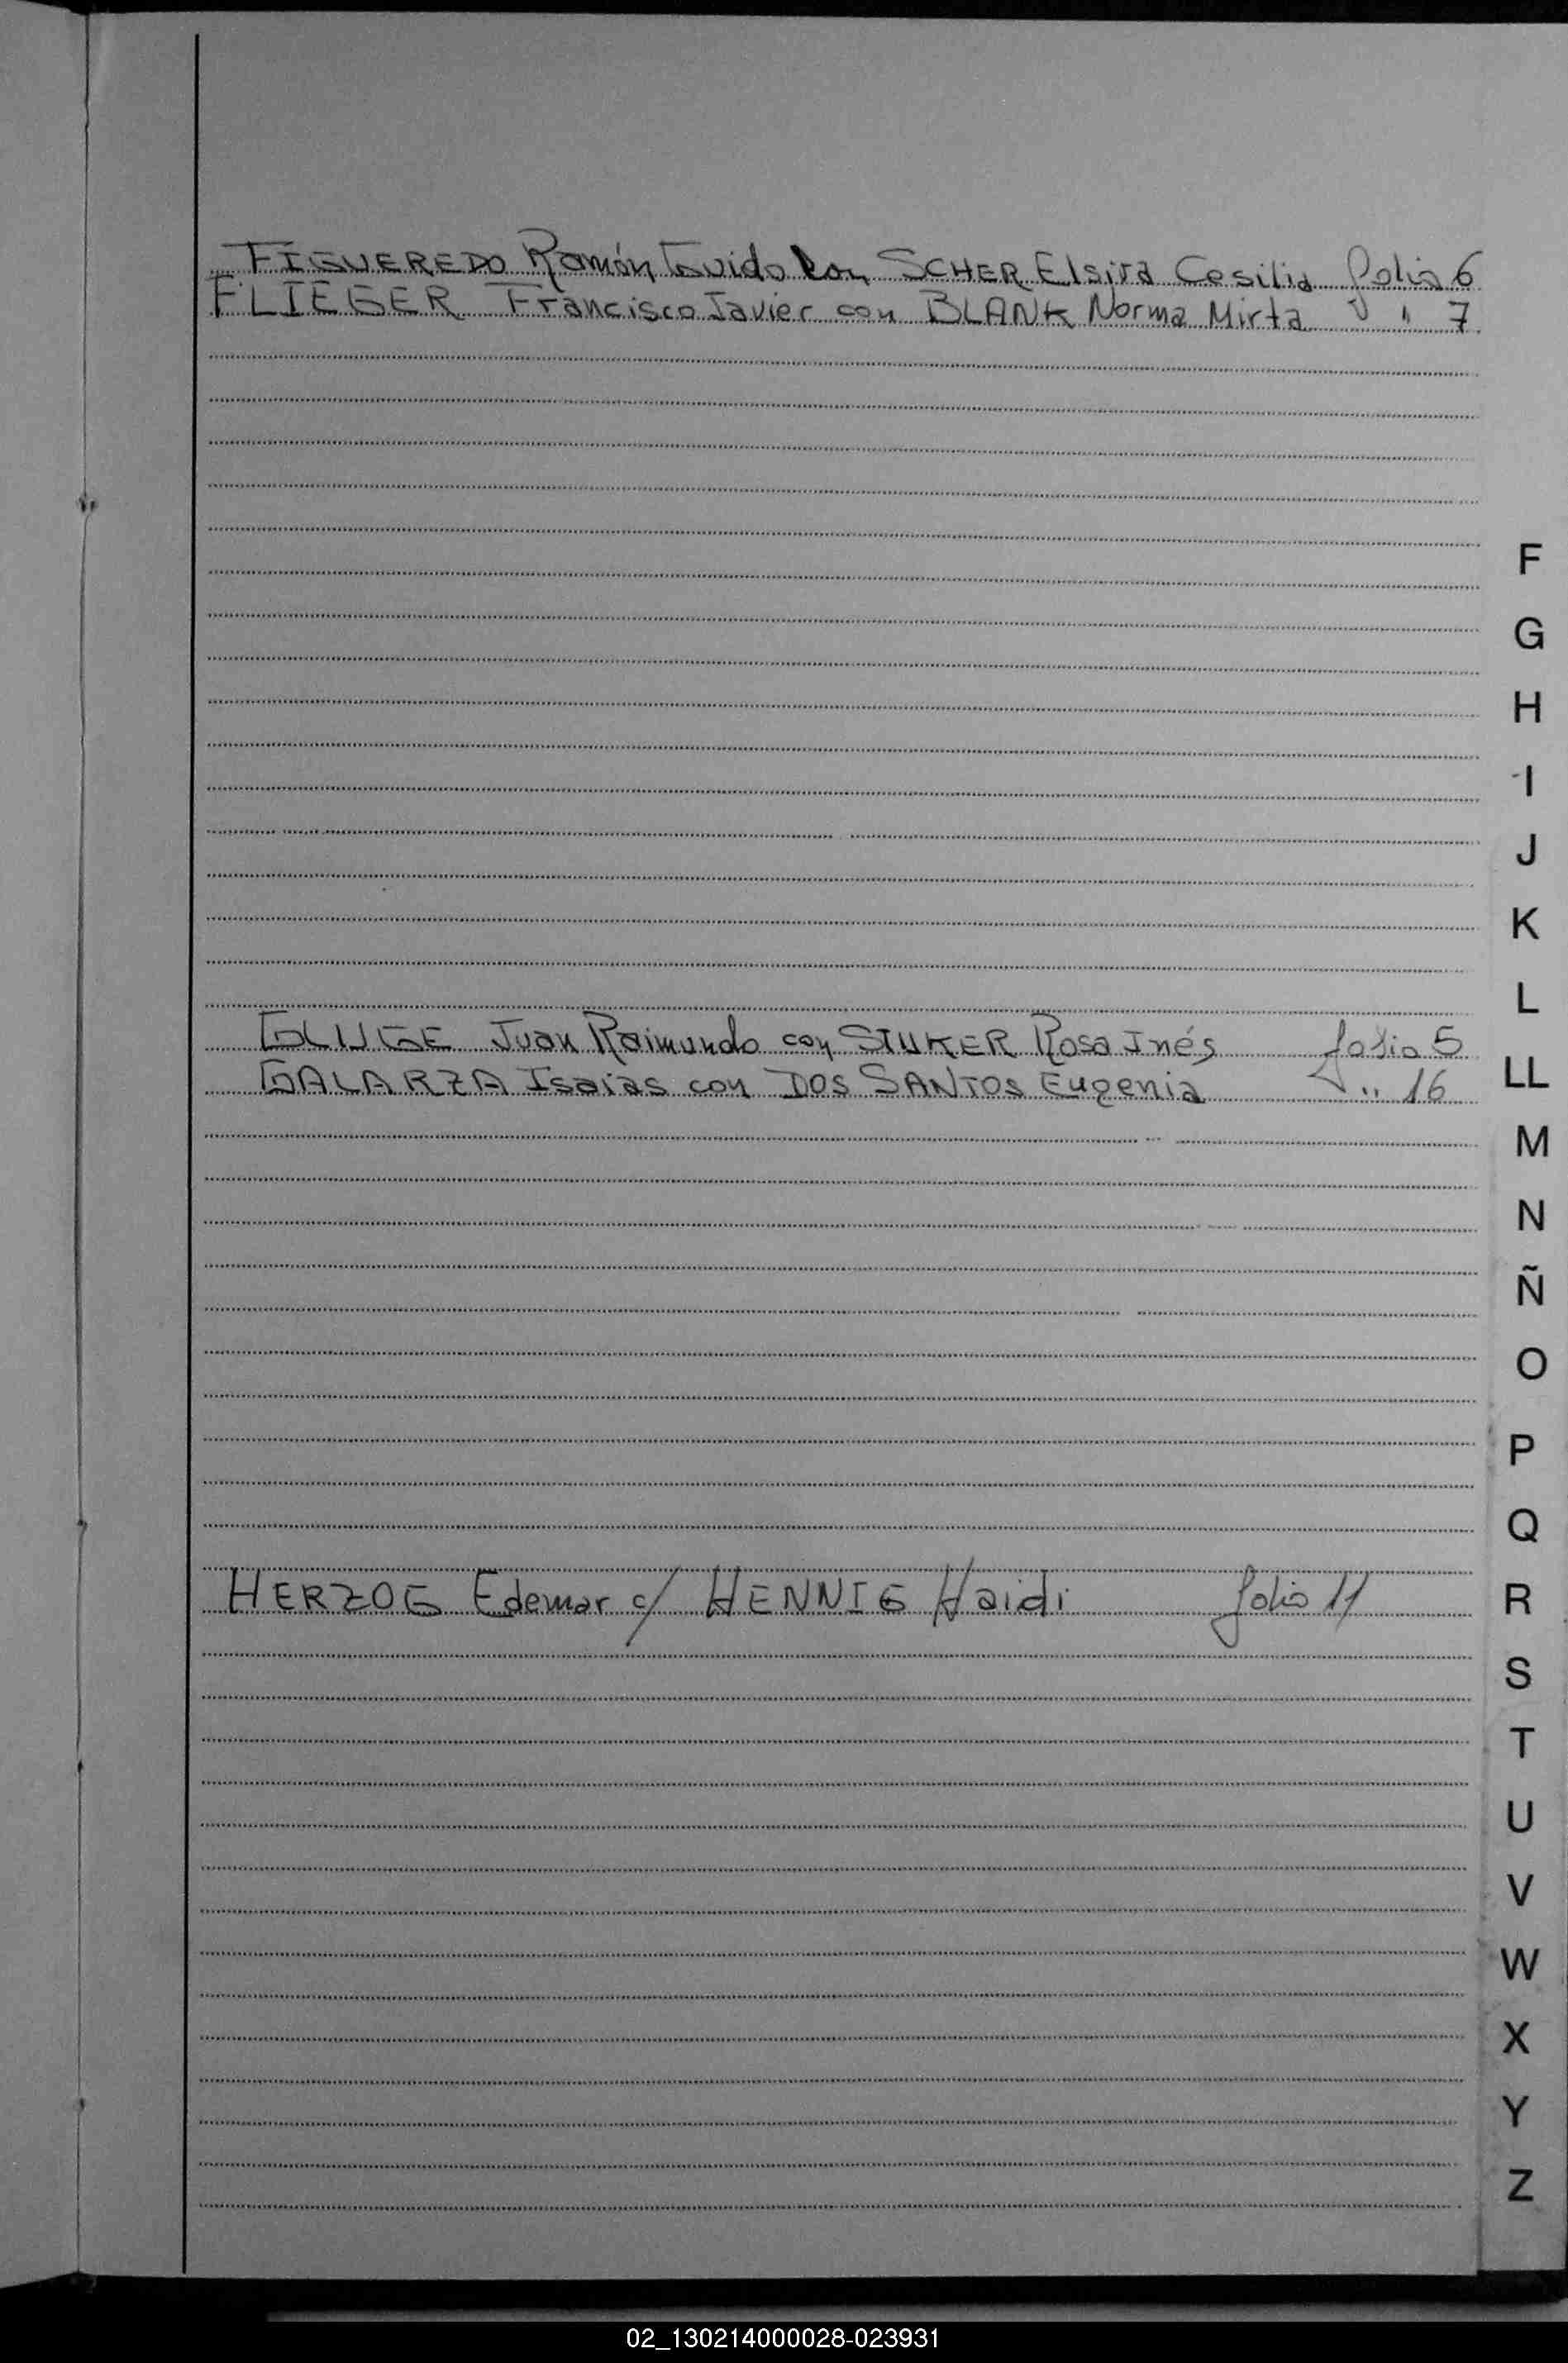 FIGUEREDO Ramón con SCHER Elsira Cesilia folio 6
FLIEGER Francisco Javier con BLANK Norma Mirta " 7
Juan Raimundo con STUKER Rosa Inés folio 5
GALARZA Isaias con DOS SANTOS Eugenia " 16
HERZOG Edemar c/ HENNIG Haidi folio 11
F
G
H
I
J
K
L
LL
M
N
Ñ
O
P
Q
R
S
T
U
V
W
X
Y
Z
02_130214000028-023931